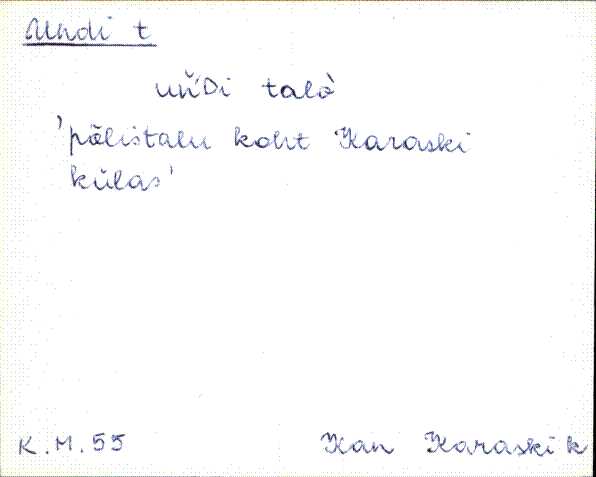 Undi t
uň́Di talò
'põlistalu koht Karaski
külas'
K.M.55 Kan Karaski k